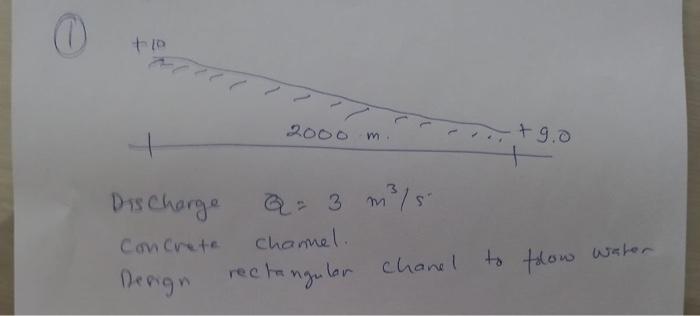 ①
+10
2000 m.
+9.0
Discharge Q = 3 m³/s
Concrete channel.
Design rectangular chanel to flow water